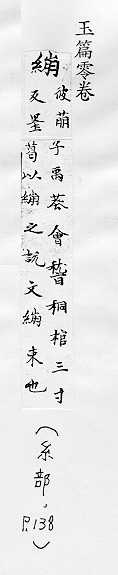 玉篇零卷
繃
彼萠
反墨
子禹葬會嵇桐棺三寸
葛以繃之說文繃束也
(糸部。P.138)